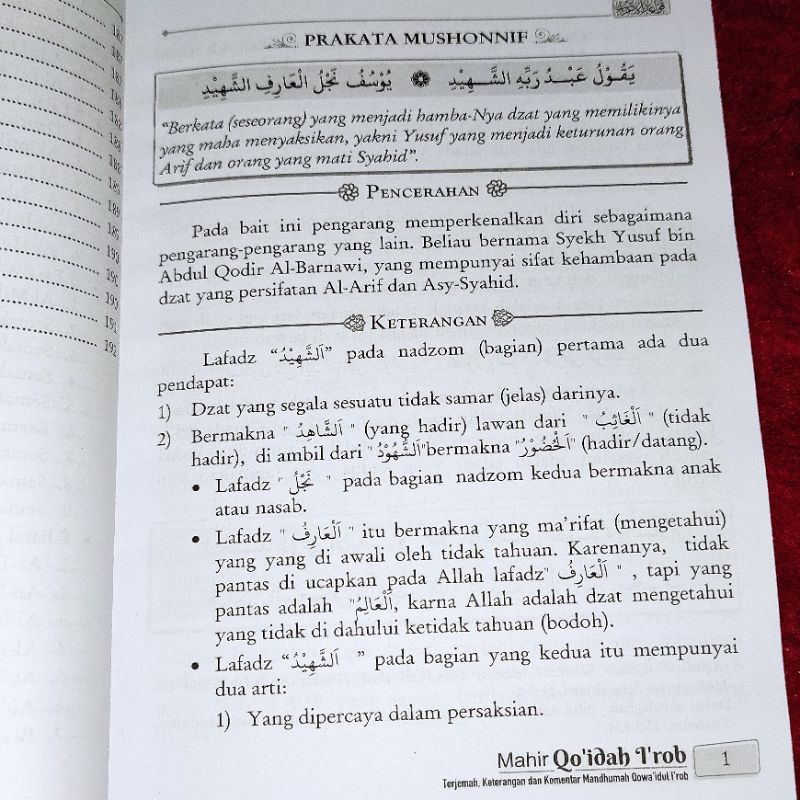 187
186
188
188
188
188
189
189
189
190
190
190
191
192
PRAKATA MUSHONNIF
يَقُوْلُ عَبْدُ رَبِّهِ الشَّهِيْدِ ۞ يُوْسُفُ نَجْلُ الْعَارِفِ الشَّهِيْدِ
“Berkata (seseorang) yang menjadi hamba-Nya dzat yang memilikinya
yang maha menyaksikan, yakni Yusuf yang menjadi keturunan orang
Arif dan orang yang mati Syahid”.
PENCERAHAN
Pada bait ini pengarang memperkenalkan diri sebagaimana
pengarang-pengarang yang lain. Beliau bernama Syekh Yusuf bin
Abdul Qodir Al-Barnawi, yang mempunyai sifat kehambaan pada
dzat yang persifatan Al-Arif dan Asy-Syahid.
KETERANGAN
Lafadz “اَلشَّهِيْدُ” pada nadzom (bagian) pertama ada dua
pendapat:
1) Dzat yang segala sesuatu tidak samar (jelas) darinya.
2) Bermakna " اَلشَّاهِدُ " (yang hadir) lawan dari " اَلْغَائِبُ " (tidak
hadir), di ambil dari " اَلشُّهُوْدُ"bermakna "اَلْحُضُوْرُ" (hadir/datang).
• Lafadz " نَجْلُ " pada bagian nadzom kedua bermakna anak
atau nasab.
• Lafadz " اَلْعَارِفُ " itu bermakna yang ma’rifat (mengetahui)
yang yang di awali oleh tidak tahuan. Karenanya, tidak
pantas di ucapkan pada Allah lafadz" اَلْعَارِفُ " , tapi yang
pantas adalah "اَلْعَالِمُ, karna Allah adalah dzat mengetahui
yang tidak di dahului ketidak tahuan (bodoh).
• Lafadz “اَلشَّهِيْدُ ” pada bagian yang kedua itu mempunyai
dua arti:
1) Yang dipercaya dalam persaksian.
Mahir Qo'idah I'rob 1
Terjemah, Keterangan dan Komentar Mandhumah Qowa'idul I'rob